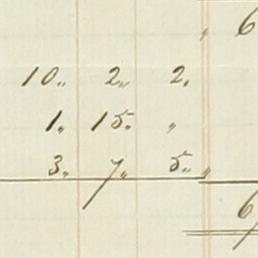 „ 6
10„ 2„ 2„
1„ 15„ „
3„ 7„ 5„ „
6